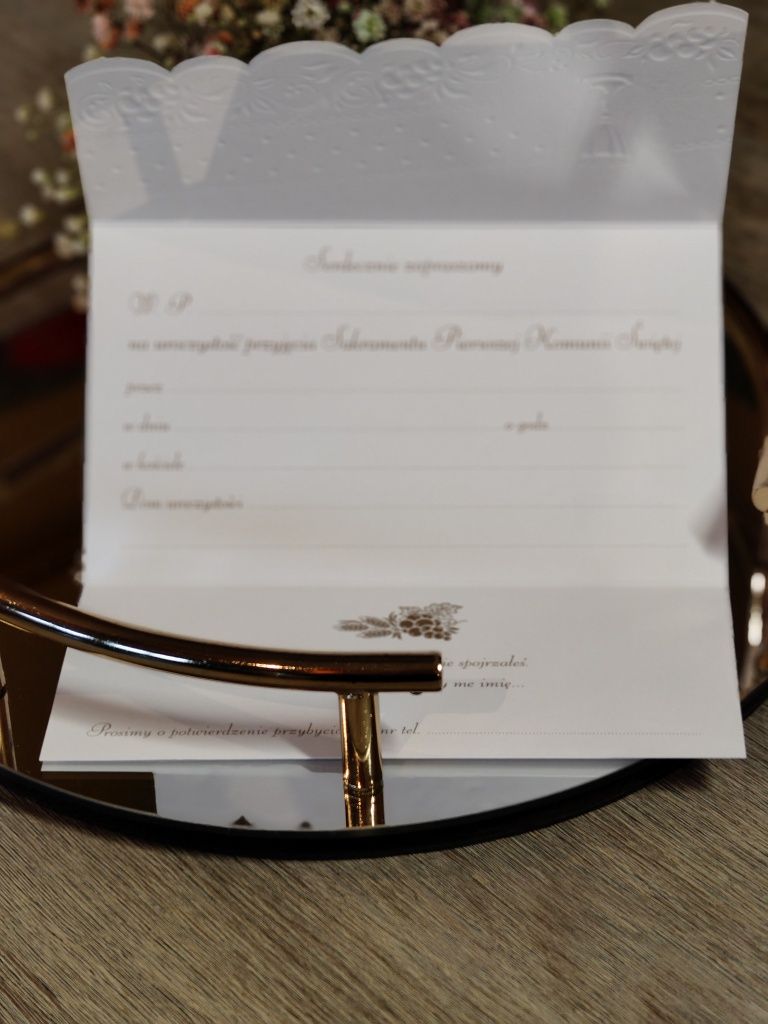 Serdecznie zapraszamy
W. P.
na uroczystość przyjęcia Sakramentu Pierwszej Komunii Świętej
przez
w dniu o godz.
w kościele
Dom uroczystości
spojrzałeś.
me imię...
Prosimy o potwierdzenie przybycia nr tel.